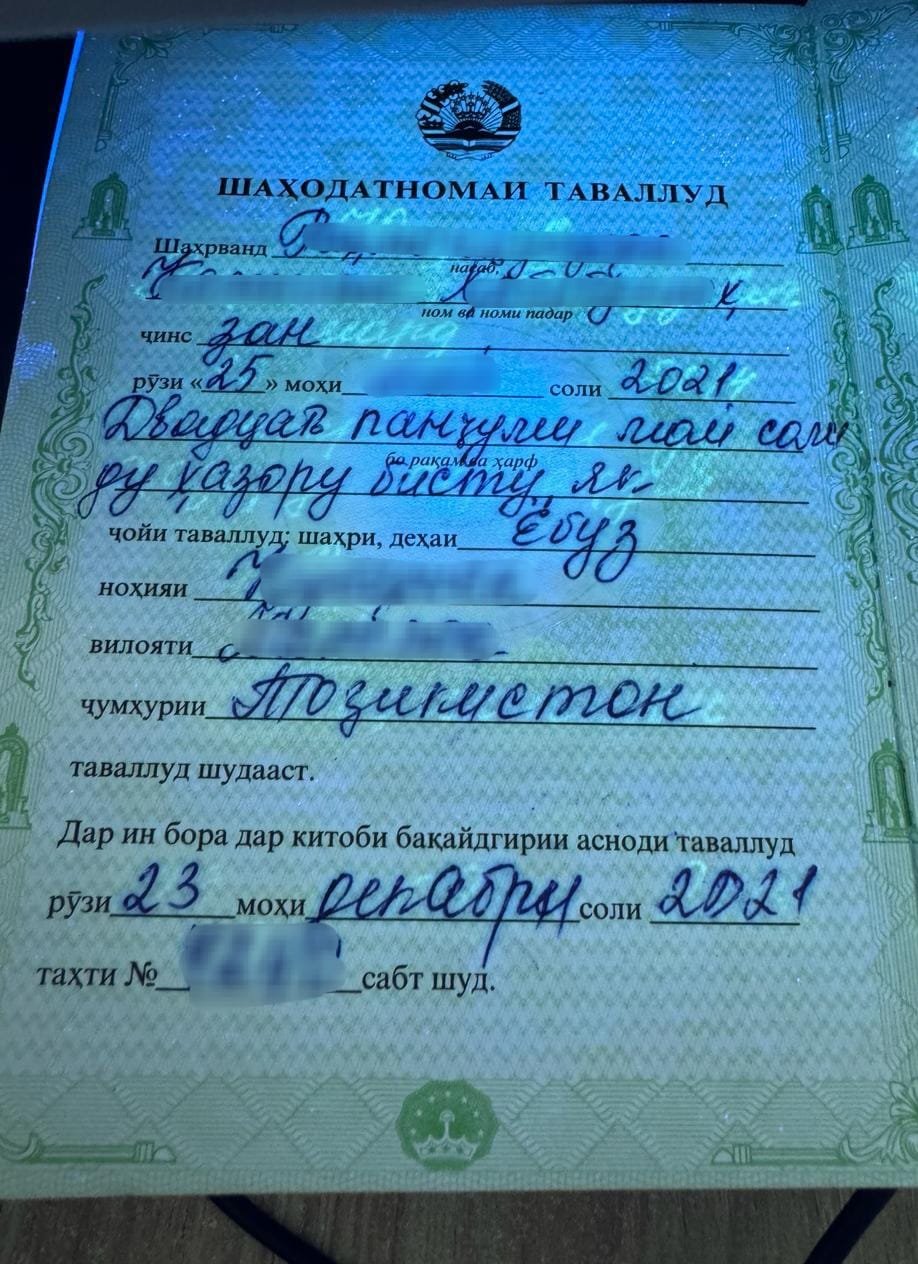 ШАҲОДАТНОМАИ ТАВАЛЛУД
Шаҳрванд
насаб,
ном ва номи падар
ҷинс зан
рӯзи «25» моҳи соли 2021
Двадцат панҷуми май соли
бо рақам ва ҳарф
ду ҳазору бисту як
ҷойи таваллуд: шаҳри, деҳаи Ёбуз
ноҳияи
вилояти
ҷумҳурии Тоҷикистон
таваллуд шудааст.
Дар ин бора дар китоби бақайдгирии асноди таваллуд
рӯзи 23 моҳи декабри соли 2021
таҳти № сабт шуд.